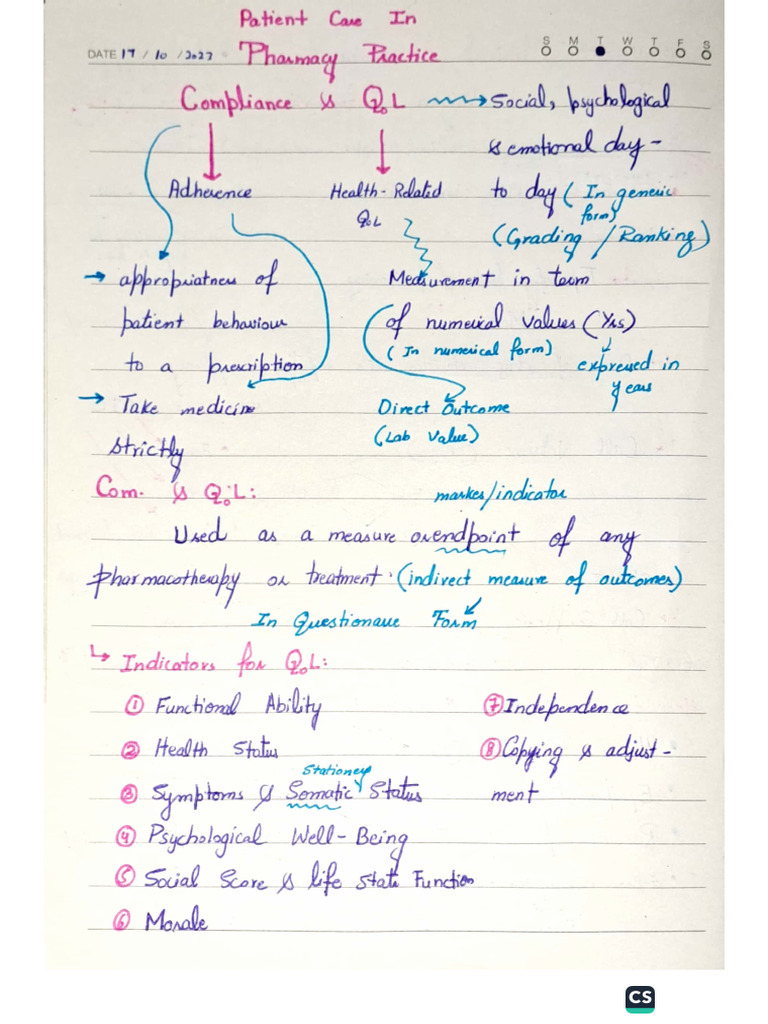 Patient Care In
DATE 17 / 10 / 2023
Pharmacy Practice
S M T W T F S
Compliance & QoL → Social, psychological
& emotional day -
to day (In generic
form)
(Grading / Ranking)
Adherence
Health-Related
QoL
→ appropriatness of
patient behaviour
to a prescription
→ Take medicine
strictly
Measurement in term
of numerical values (Yrs)
(In numerical form)
expressed in
years
Direct Outcome
(Lab Value)
Com. & QoL:
marker/indicator
Used as a measure or endpoint of any
pharmacotherapy or treatment. (indirect measure of outcomes)
In Form
Indicators for QoL:
① Functional Ability
② Health Status
Stationey
③ Symptoms & Somatic Status
④ Psychological Well-Being
⑤ Social Score & life state Function
⑥ Morale
⑦ Independence
⑧ Copying & adjust-
ment
CS